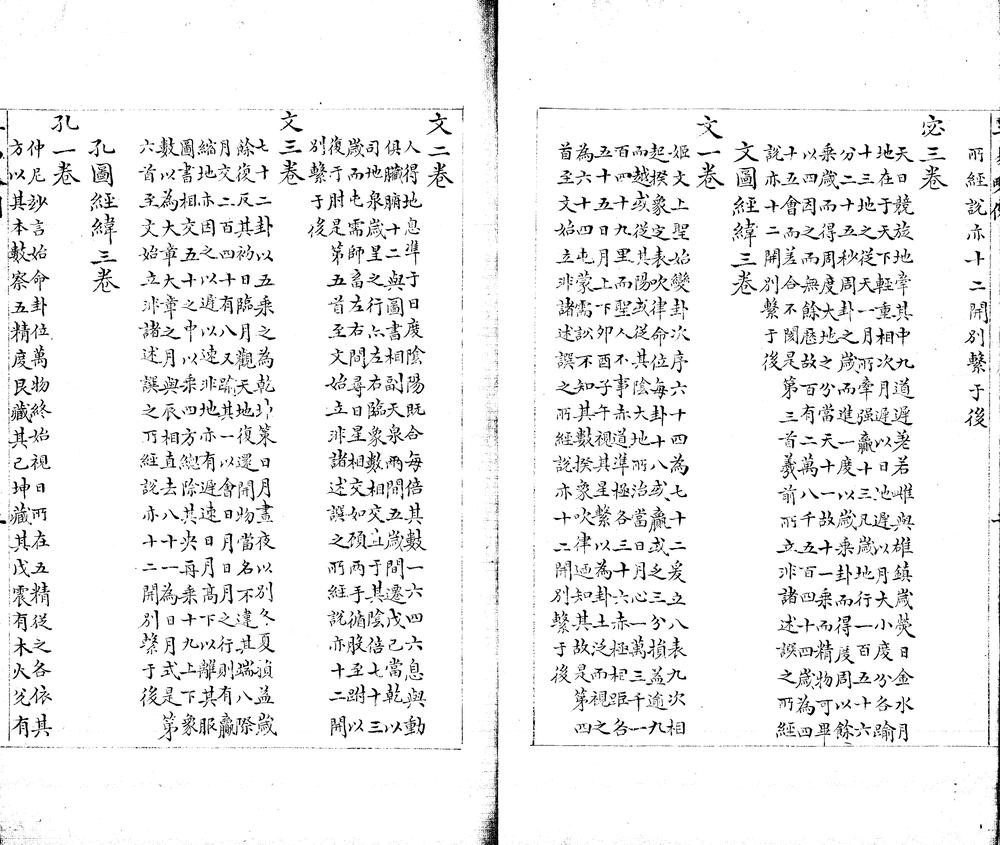 所經説亦十二開別繫于後
宓三卷
天日競旋地宰其中九道遲著若雌與雄鎮歲熒日金水月
地在于天下輕重相次月遲以日地遲以月大一度分各踰
十三地之從天一月所宰强贏十三凡歲地行小百五十六
分二十五秒周卦之歲而進一度以歲乘卦而得一度周以餘
乘歲而得周度大地之分當天十一故十一乘而得精物可畢
以四因之而無餘歷故分有二萬八千五百四十四歲為四
十五會而差合不閡是第三首羲前所立非諸述誤之所經
説亦十二開別繫于後
文圖經緯三卷
文一卷
姬文上聖始變卦次序六十四為七十二爰立八表九次相
起揆象定表吹律命位每卦十八或贏或乏三分損益逾九
而越或從其陽或從其陰大地所治當日月心一萬三千一
百四十九里而聖人不事赤道準極各三十六赤極相距各
五十五日月上下卯酉子午視其星繫以為卦土泛而視之
為六十四屯蒙需訟不知其數揆象吹律迺知其故是第四
首至文始立非諸述誤之所經説亦十二開別繫于後
文二卷
人得地息準于度陰陽既合每倍其數一六四六息與動
俱臟腑十二與圖書相副天泉兩間五歲間遷戊己當乾以
司地泉歲星之行六左右臨象數相交立于其陰倍七十三
歲而屯需師畜左右間尋日星相交如碩兩手循股至跗以
復于肘是第五首至文始立非諸述誤之所經説亦十二開
別繫于後
文三卷
七十二卦以五乘之為乾坤策日月晝夜以別冬夏損益歲
餘復反其初日臨月觀天地復還開物當名不違其端八際
月交二百四十有八又踰其一以會日月日月之行則有贏
縮地亦因之以遲以速非地亦有遲速日月高下以離其服
圖書相交五十之中以乘四方總除其央再乘十九上象
數以為大章章之月與辰相直去八十一為別月式是下第
六首至文始立非諸述誤之所經説亦十二開別繫于後
孔圖經緯三卷
孔一卷
仲尼妙言始命卦位萬物終始視日所在五精從之各依其
方以其本數察五精度艮藏其己坤藏其戊震有木火兌有